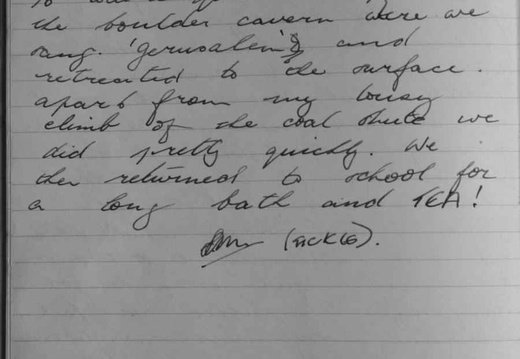 the boulder cavern were we
sang. 'Jerusalem' and
retreated to the surface.
apart from my lousy
climb of the coal shute we
did pretty quickly. We
then returned to school for
a long bath and TEA!